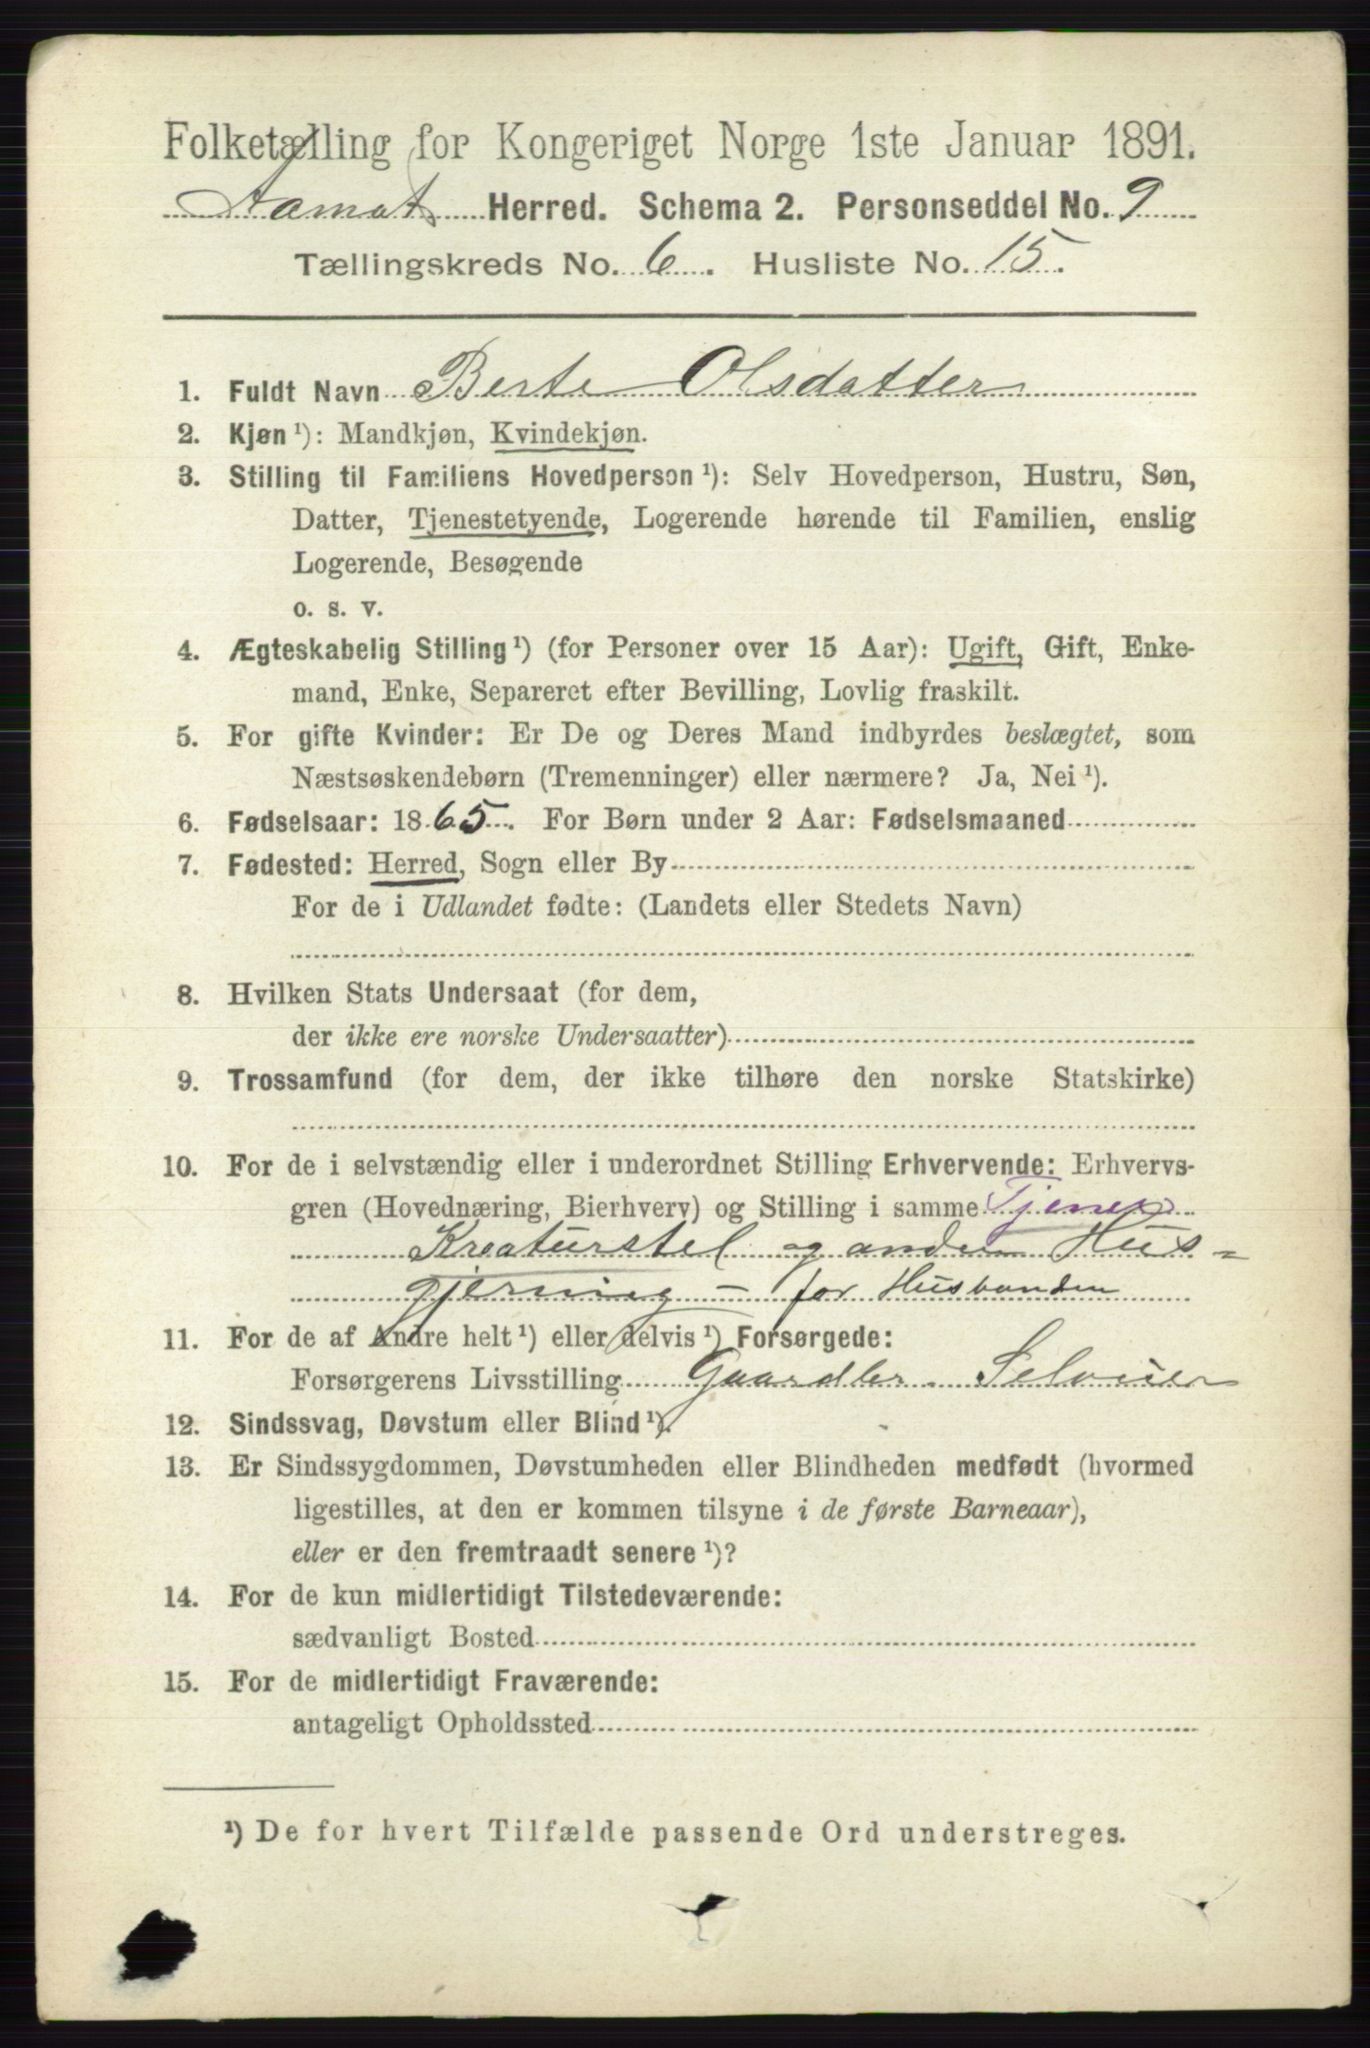 Folketælling for Kongeriget Norge 1ste Januar 1891.
Aamot Herred. Schema 2. Personseddel No. 9
Tællingskreds No. 6. Husliste No. 15.
1. Fuldt Navn Berte Olsdatter
2. Kjøn ¹): Mandkjøn, Kvindekjøn.
3. Stilling til Familiens Hovedperson ¹): Selv Hovedperson, Hustru, Søn,
Datter, Tjenestetyende, Logerende hørende til Familien, enslig
Logerende, Besøgende
o. s. v.
4. Ægteskabelig Stilling ¹) (for Personer over 15 Aar): Ugift, Gift, Enke-
mand, Enke, Separeret efter Bevilling, Lovlig fraskilt.
5. For gifte Kvinder: Er De og Deres Mand indbyrdes beslægtet, som
Næstsøskendebørn (Tremenninger) eller nærmere? Ja, Nei ¹).
6. Fødselsaar: 1865. For Børn under 2 Aar: Fødselsmaaned
7. Fødested: Herred, Sogn eller By
For de i Udlandet fødte: (Landets eller Stedets Navn)
8. Hvilken Stats Undersaat (for dem,
der ikke ere norske Undersaatter)
9. Trossamfund (for dem, der ikke tilhøre den norske Statskirke)
10. For de i selvstændig eller i underordnet Stilling Erhvervende: Erhvervs-
gren (Hovednæring, Bierhverv) og Stilling i samme Tjener
Kreaturstel og anden Hus=
gjerning - for Husbonden
11. For de af Andre helt ¹) eller delvis ¹) Forsørgede:
Forsørgerens Livsstilling Gaardbr. Seloeier
12. Sindssvag, Døvstum eller Blind ¹).
13. Er Sindssygdommen, Døvstumheden eller Blindheden medfødt (hvormed
ligestilles, at den er kommen tilsyne i de første Barneaar),
eller er den fremtraadt senere ¹)?
14. For de kun midlertidigt Tilstedeværende:
sædvanligt Bosted
15. For de midlertidigt Fraværende:
antageligt Opholdssted
¹) De for hvert Tilfælde passende Ord understreges.